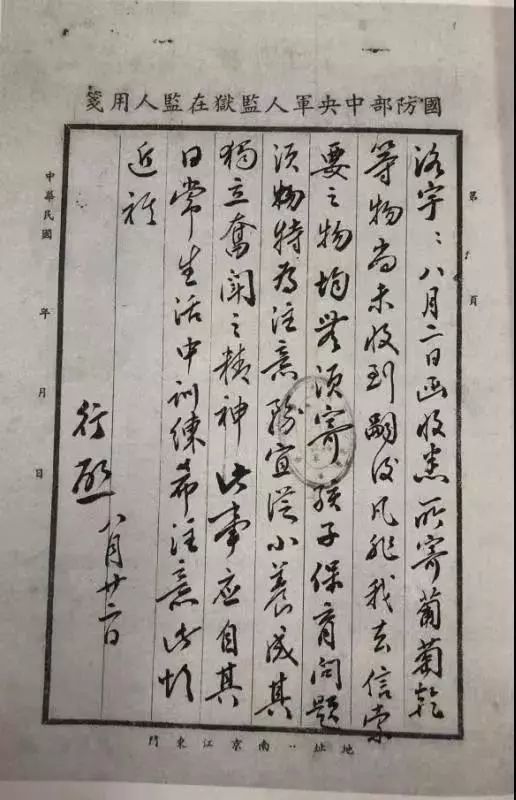 國防部中央軍人監獄在監人用箋
第 頁
洛宇：八月二日函收悉所寄葡萄乾
等物尚未收到嗣後凡非我去信索
要之物均無須寄孩子保育問題
須妳特為注意務宜從小養成其
獨立奮鬥之精神此事應自其
日常生活中訓練希注意此頌
近祺
行 八月廿二日
中華民國 年 月 日
地址：南京江東門